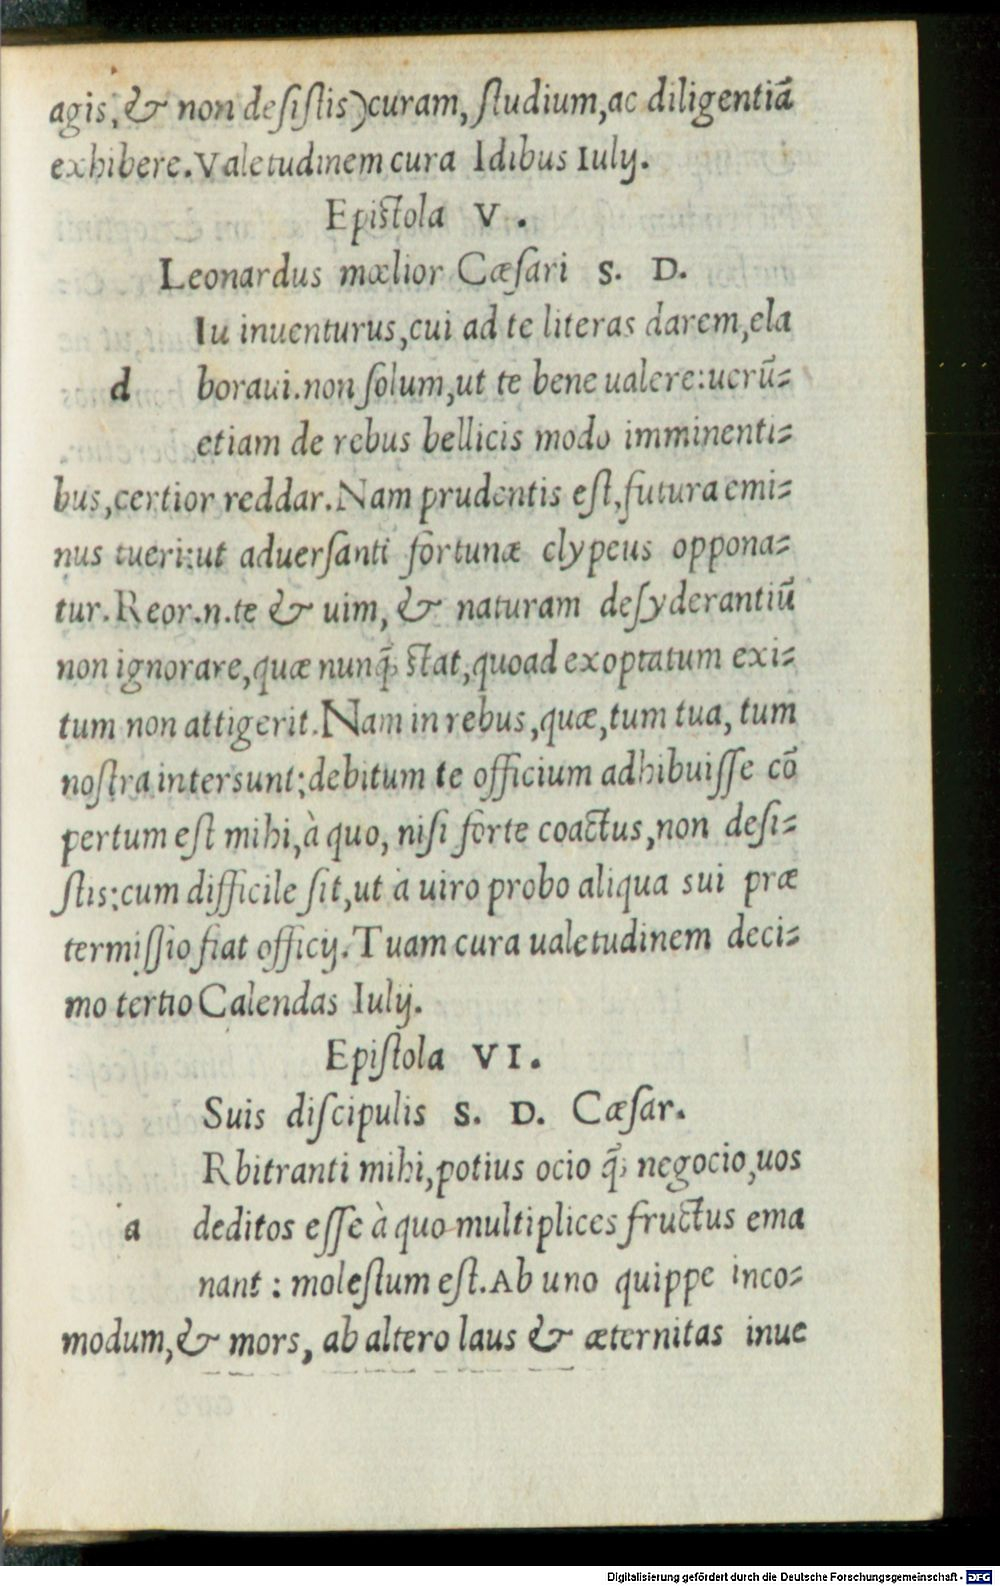 agis, & non desistis) curam, studium, ac diligentiā
exhibere. Valetudinem cura Idibus Iulij.
Epistola V.
Leonardus mœlior Cæsari S. D.
Iu inuenturus, cui ad te literas darem, ela
d boraui. non solum, ut te bene ualere: uerū=
etiam de rebus bellicis modo imminenti=
bus, certior reddar. Nam prudentis est, futura emi=
nus tueri: ut aduersanti fortunæ clypeus oppona=
tur. Reor .n. te & uim, & naturam desyderantiū
non ignorare, quæ nunq̄; stat, quoad exoptatum exi=
tum non attigerit. Nam in rebus, quæ, tum tua, tum
nostra intersunt; debitum te officium adhibuisse cō
pertum est mihi, à quo, nisi forte coactus, non desi=
stis: cum difficile sit, ut a uiro probo aliqua sui præ
termissio fiat officij. Tuam cura ualetudinem deci=
mo tertio Calendas Iulij.
Epistola VI.
Suis discipulis S. D. Cæsar.
Rbitranti mihi, potius ocio q̄; negocio, uos
a deditos esse à quo multiplices fructus ema
nant: molestum est. Ab uno quippe inco=
modum, & mors, ab altero laus & æternitas inue
Digitalisierung gefördert durch die Deutsche Forschungsgemeinschaft - DFG